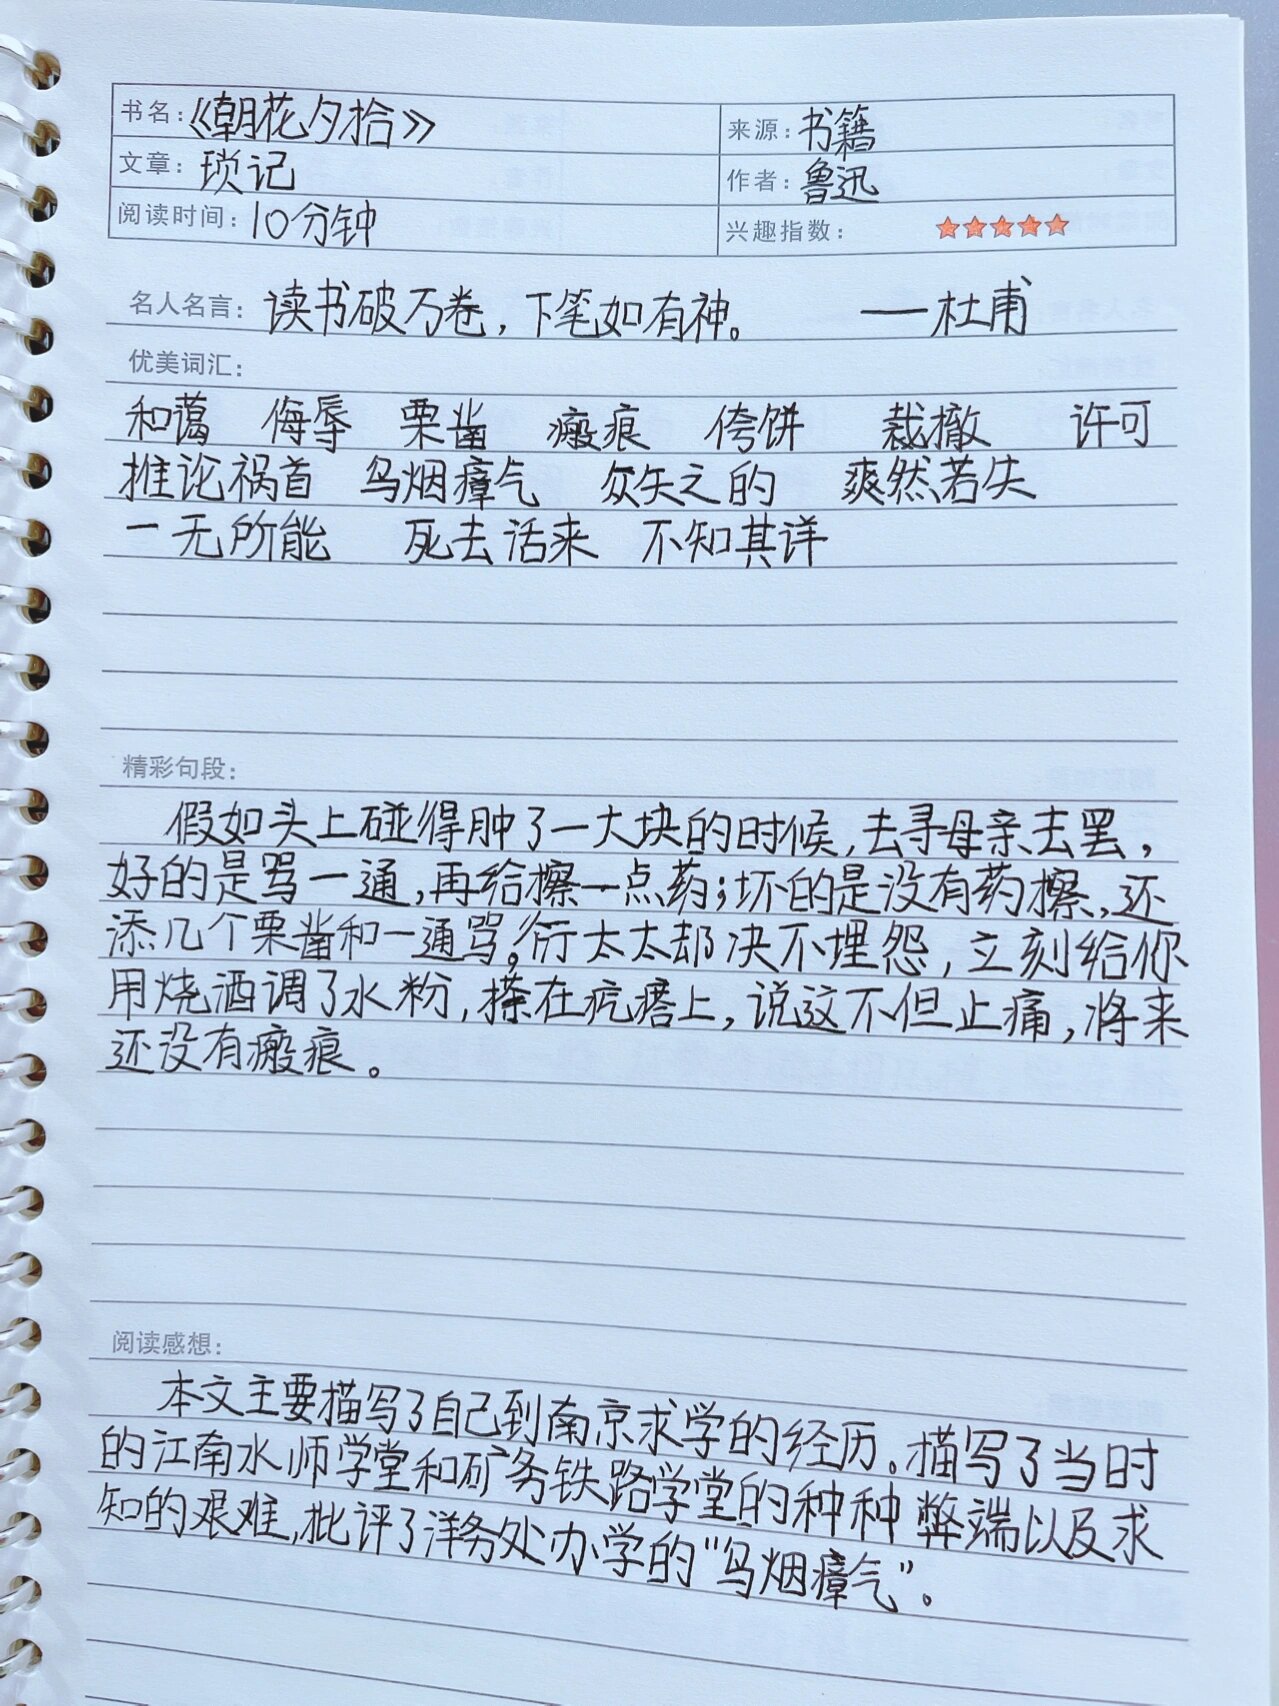 书名：《朝花夕拾》 来源：书籍
文章：琐记 作者：鲁迅
阅读时间：10分钟 兴趣指数：★★★★★
名人名言：读书破万卷，下笔如有神。 ——杜甫
优美词汇：
和蔼 侮辱 栗凿 瘢痕 侉饼 裁撤 许可
推论祸首 乌烟瘴气 众矢之的 爽然若失
一无所能 死去活来 不知其详
精彩句段：
假如头上碰得肿了一大块的时候，去寻母亲去罢，
好的是骂一通，再给擦一点药；坏的是没有药擦，还
添几个栗凿和一通骂。衍太太却决不埋怨，立刻给你
用烧酒调了水粉，搽在疙瘩上，说这不但止痛，将来
还没有瘢痕。
阅读感想：
本文主要描写了自己到南京求学的经历。描写了当时
的江南水师学堂和矿务铁路学堂的种种弊端以及求
知的艰难，批评了洋务处办学的“乌烟瘴气”。